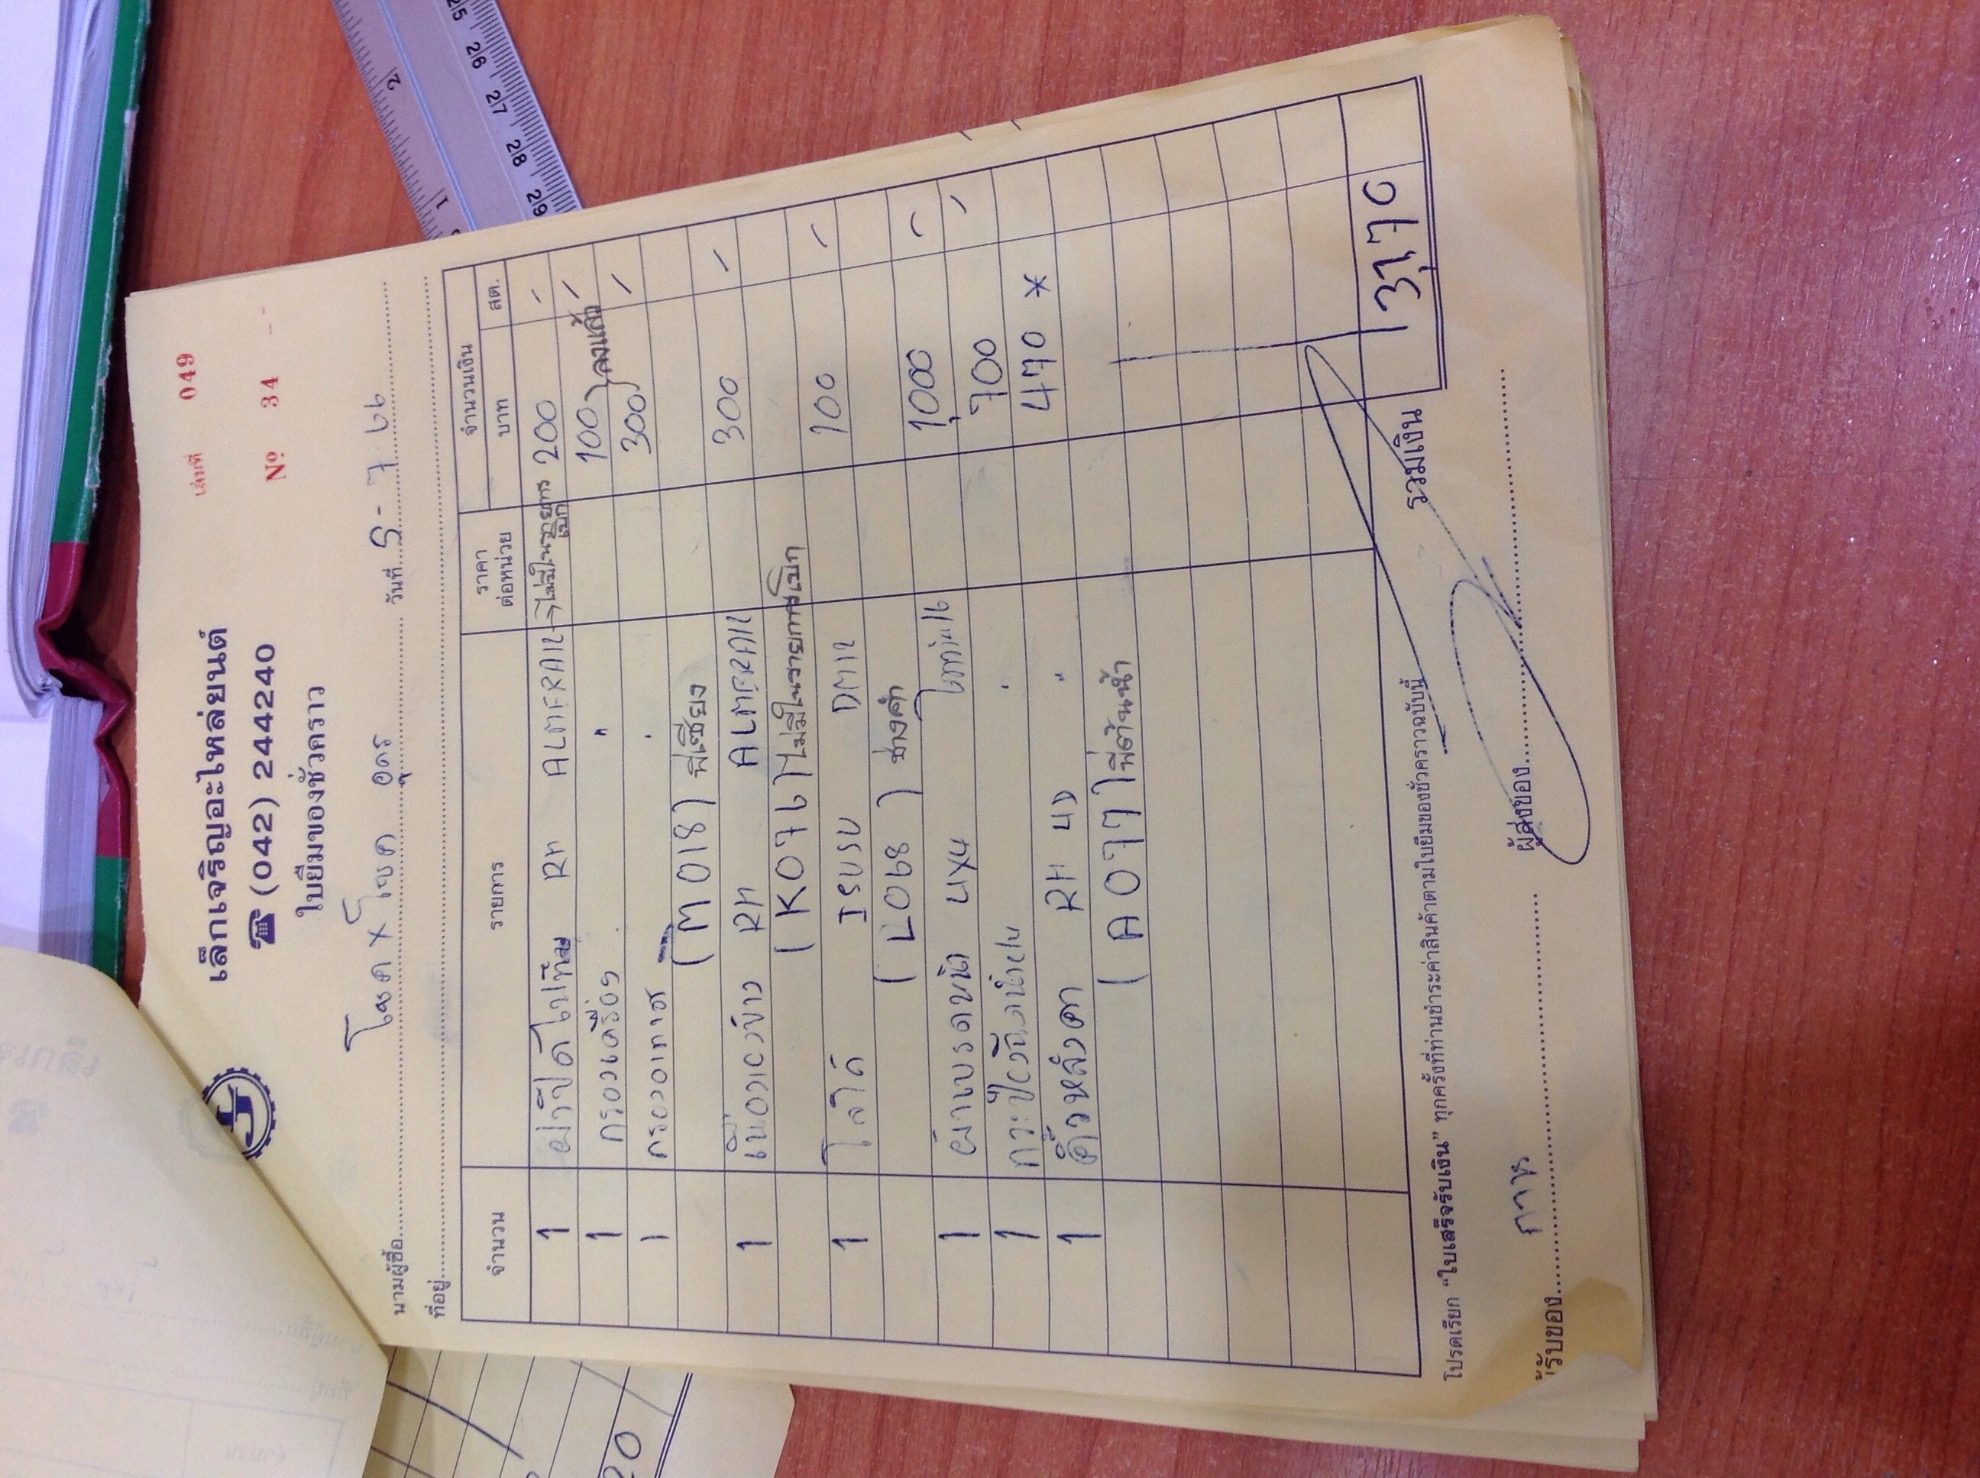 เล่มที่ 049
เล็กเจริญอะไหล่ยนต์
☎ (042) 244240
№ 34
ใบยืมของชั่วคราว
นามผู้ซื้อ โชค x โชค อุดร วันที่ 5-7-66
ที่อยู่
จำนวน รายการ ราคาต่อหน่วย จำนวนเงิน
บาท สต.
1 RH ALMERA ไม่มีในรายการเบิก 200 -
1 กรองเครื่อง " 100 - ลงแล้ว
1 " 300 -
(M018) พี่เชียง
1 RH ALMERA 300 -
(K076) ไม่มีในรายการเบิก
1 โลโก้ ISUSU DMAX 100 -
(L068) ช่างคำ
1 ผ้าเบรค 4X4 1,000 -
1 " 700 -
1 RH 4D " 470 *
(A077) พี่ต้นน้ำ
รวมเงิน 3,170
โปรดเรียก "ใบเสร็จรับเงิน" ทุกครั้งที่ท่านชำระค่าสินค้าตามใบยืมของชั่วคราวฉบับนี้
ผู้รับของ ผู้ส่งของ
25 26 27 28 29
2 1
20